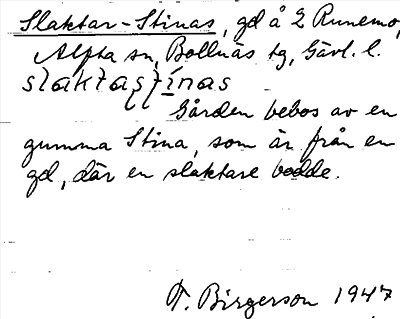 Slaktar-Stinas, gd å 2 Runemo,
Alfta sn, Bollnäs tg, Gävl. l.
slaktastinas
Gården bebos av en
gumma Stina, som är från en
gd, där en slaktare bodde.
F. Birgerson 1947